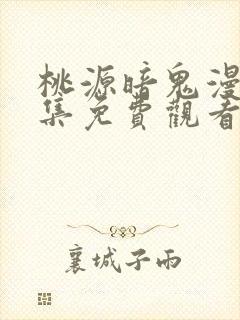 桃源暗鬼漫
集免費觀看
襄城子雨